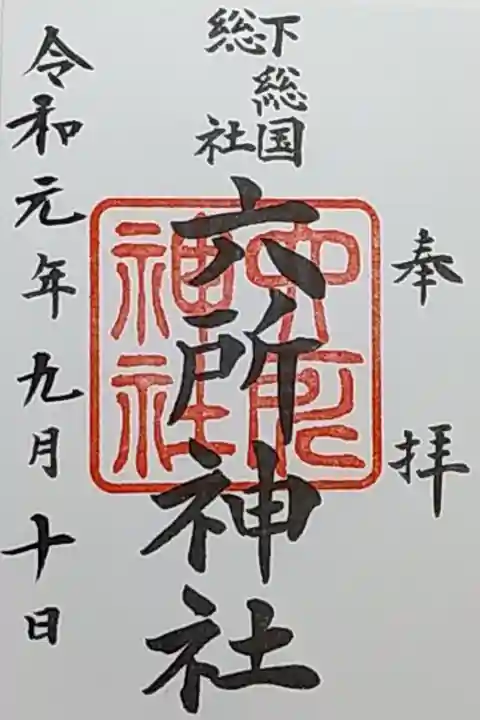 奉拝
下総国
総社
六所神社
六所神社
令和元年九月十日